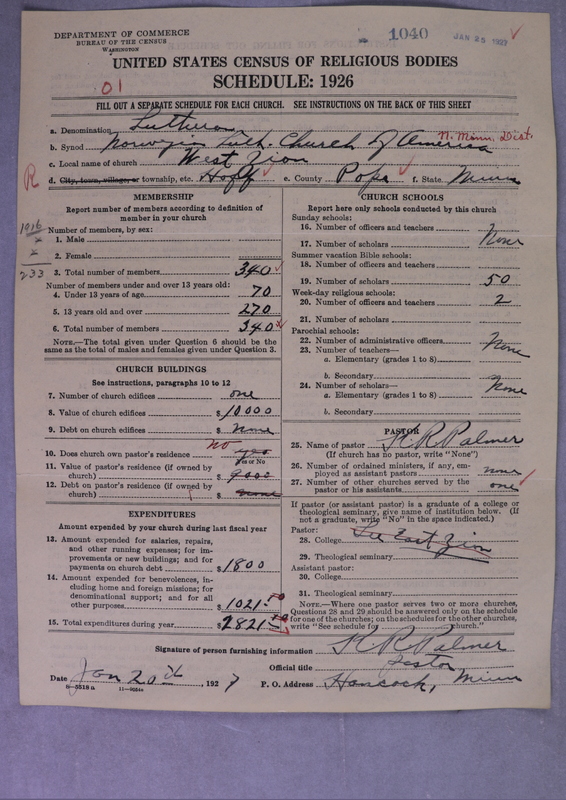 DEPARTMENT OF COMMERCE
BUREAU OF THE CENSUS
WASHINGTON
1040
JAN 25 1927
UNITED STATES CENSUS OF RELIGIOUS BODIES
SCHEDULE: 1926
01
FILL OUT A SEPARATE SCHEDULE FOR EACH CHURCH. SEE INSTRUCTIONS ON THE BACK OF THIS SHEET
a. Denomination Lutheran
N. Minn. Dist.
b. Synod Norwegian Luth. Church of America
c. Local name of church West Zion
R
d. City, town, village, or township, etc. Hoff e. County Pope f. State Minn
MEMBERSHIP
Report number of members according to definition of
member in your church
1916
x
x
233
Number of members, by sex:
1. Male
2. Female
3. Total number of members 340
Number of members under and over 13 years old:
4. Under 13 years of age 70
5. 13 years old and over 270
6. Total number of members 340
NOTE.—The total given under Question 6 should be the
same as the total of males and females given under Question 3.
CHURCH BUILDINGS
See instructions, paragraphs 10 to 12
7. Number of church edifices one
8. Value of church edifices $10000
9. Debt on church edifices $ none
no
10. Does church own pastor's residence yes
Yes or No
11. Value of pastor's residence (if owned by
church) $
12. Debt on pastor's residence (if owned by
church) $ none
EXPENDITURES
Amount expended by your church during last fiscal year
13. Amount expended for salaries, repairs,
and other running expenses; for im-
provements or new buildings; and for
payments on church debt $1800
14. Amount expended for benevolences, in-
cluding home and foreign missions; for
denominational support; and for all
other purposes 1021.50
15. Total expenditures during year $2821.50
CHURCH SCHOOLS
Report here only schools conducted by this church
Sunday schools:
16. Number of officers and teachers
17. Number of scholars None
Summer vacation Bible schools:
18. Number of officers and teachers
19. Number of scholars 50
Week-day religious schools:
20. Number of officers and teachers 2
21. Number of scholars
Parochial schools:
22. Number of administrative officers None
23. Number of teachers—
a. Elementary (grades 1 to 8)
b. Secondary
24. Number of scholars— None
a. Elementary (grades 1 to 8)
b. Secondary
PASTOR
25. Name of pastor K R Palmer
(If church has no pastor, write "None")
26. Number of ordained ministers, if any, em-
ployed as assistant pastors none
27. Number of other churches served by the
pastor or his assistants one
If pastor (or assistant pastor) is a graduate of a college or
theological seminary, give name of institution below. (If
not a graduate, write "No" in the space indicated.)
Pastor:
28. College See East Zion
29. Theological seminary
Assistant pastor:
30. College
31. Theological seminary
NOTE.—Where one pastor serves two or more churches,
Questions 28 and 29 should be answered only on the schedule
for one of the churches; on the schedules for the other churches,
write "See schedule for church."
Signature of person furnishing information K R Palmer
Official title Pastor
Date Jan 20th, 1927 P. O. Address Hancock, Minn